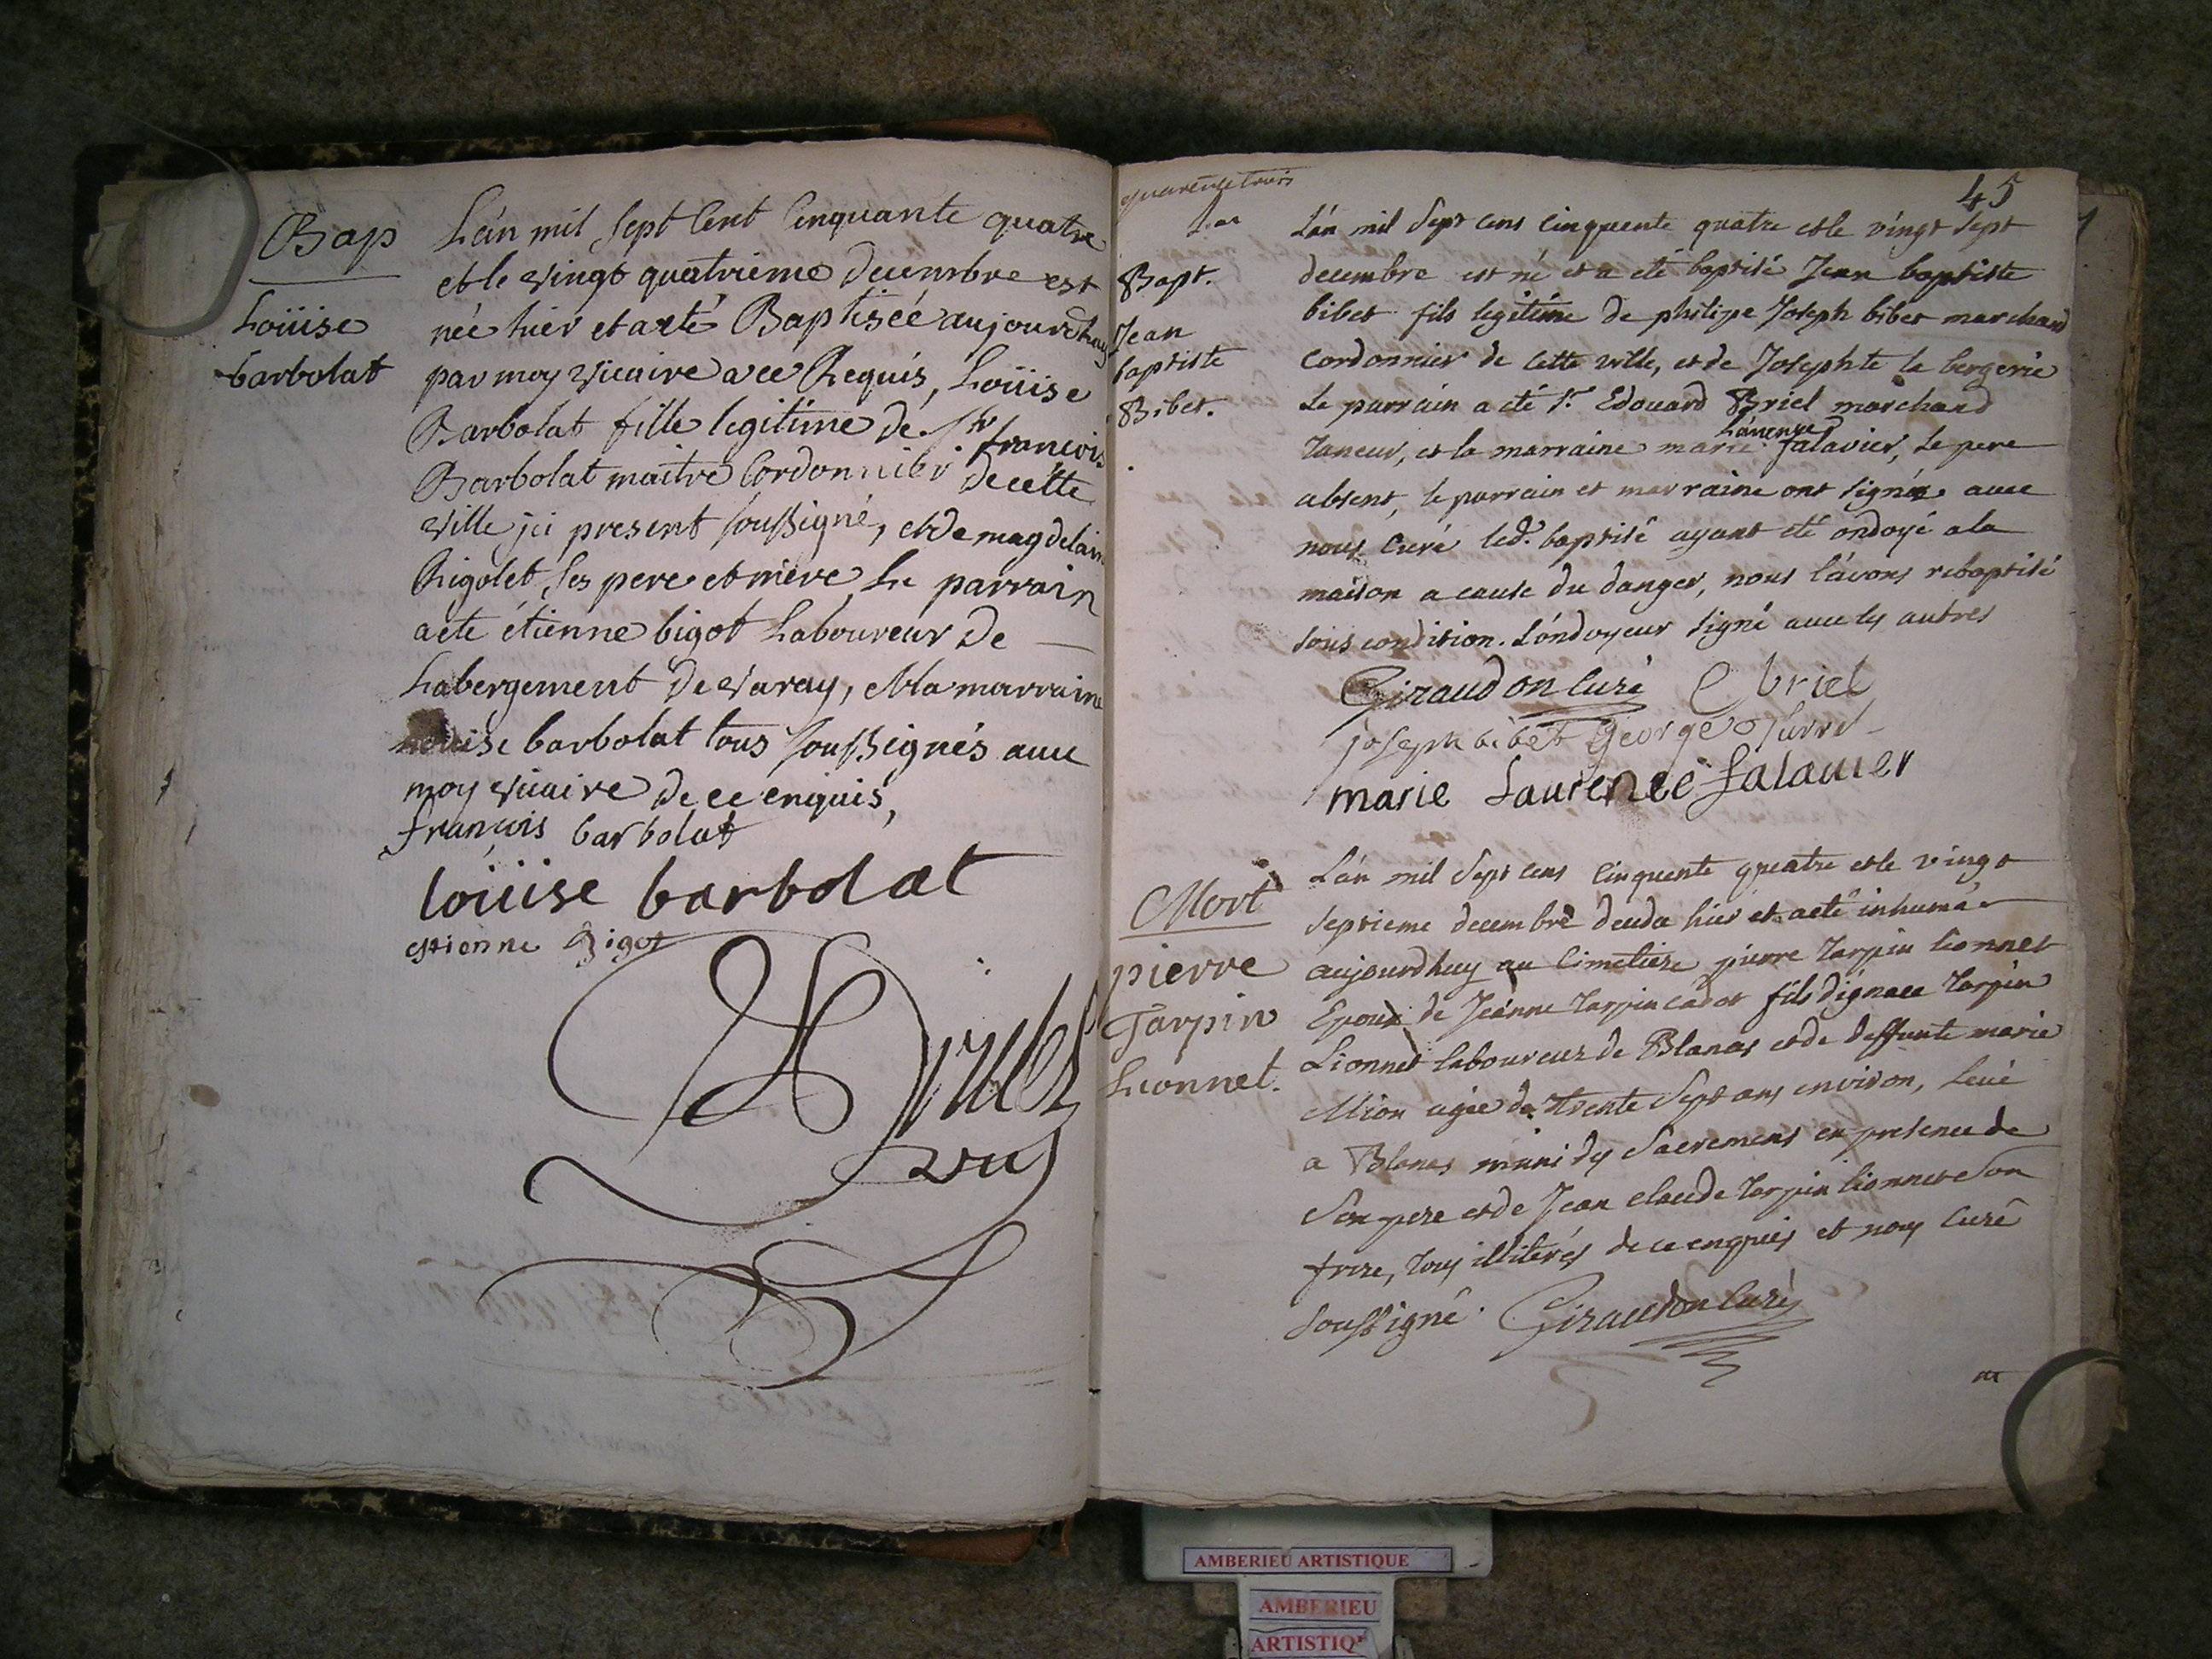 Bap
Loüise
barbolat
L'an mil sept Cent Cinquante quatre
et le vingt quatrieme decembre est
née hier et a eté Baptiséé aujourdhuy
par moy vicaire a ce Requis, Loüise
Barbolat fille legitime de Sr françois
Barbolat maitre Cordonnier de cette
ville ici present soussigné, et de magdelaine
Rigolet, ses pere et mere, Le parrain
a eté étienne bigot Laboureur de
Labergement de varay, et la marraine
Loüise barbolat tous soussignés avec
moy vicaire de ce enquis,
françois barbolat
loüise barbolat
estienne Bigot
vic
quarente trois
45
Bapt.
Jean
baptiste
Bibet.
L'an mil Sept cens Cinquente quatre et le vingt sept
decembre est né et a eté baptisé Jean baptiste
bibet fils legitime de philipe Joseph bibet marchand
Cordonnier de cette ville, et de Josephte la bergerie
Le parrain a eté Sr Edouard Briel marchand
Laurence
taneur, et la marraine marie falavier, Le pere
absent, le parrain et marraine ont signés avec
nous Curé led. baptisé ayant eté ondoyé a la
maison a cause du danger, nous l'avons rebaptisé
sous condition. L'ondoyeur signé avec les autres
Giraudon Curé E briel
joseph bibet George
marie Laurence falavier
Mort
pierre
Tarpin
Lionnet.
L'an mil Sept cens Cinquente quatre et le vingt
septieme decembre deceda hier et a eté inhumé
aujourdhuy au Cimetiere pierre tarpin lionnet
Epoux de Jeanne tarpin cadot fils d'ignace tarpin
Lionnet laboureur de Blanas et de deffunte marie
Mion agée de trente Sept ans environ, levé
a Blanas muni des Sacremens en presence de
Son pere et de Jean claude tarpin lionnet Son
frere, tous illiterés de ce enquis et nous Curé
Soussigné. Giraudon Curé
AMBERIEU ARTISTIQUE
AMBERIEU
ARTISTIQ